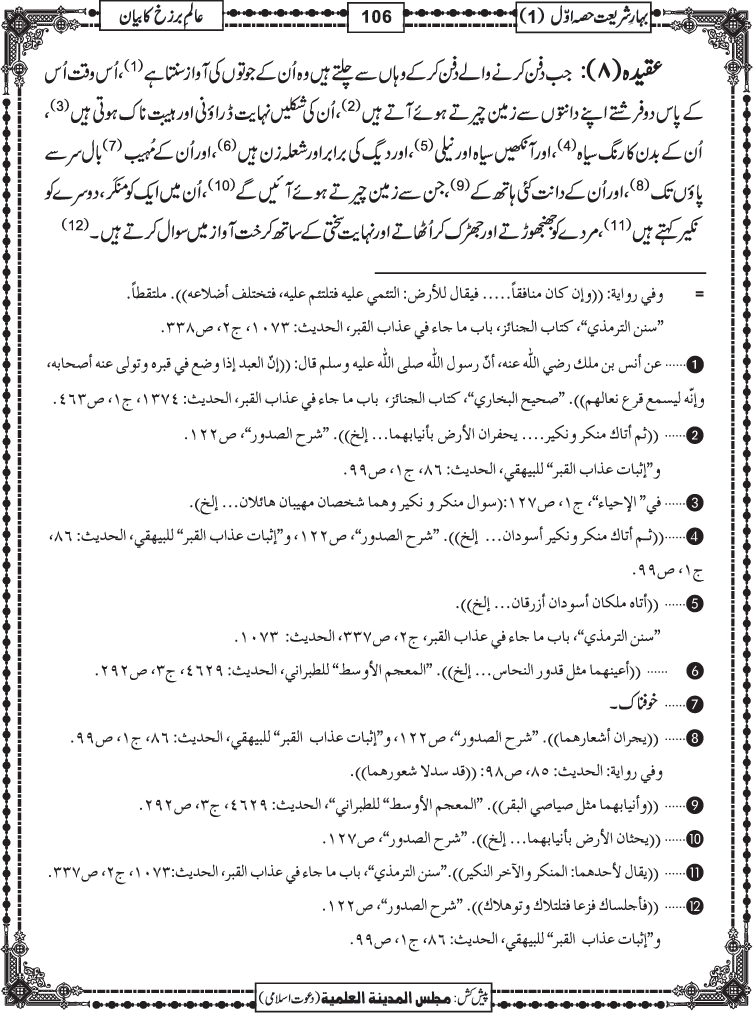 بہارِشریعت حصہ اوّل (1)
106
عالَمِ برزخ کا بیان
عقیدہ (۸): جب دفن کرنے والے دفن کرکے وہاں سے چلتے ہیں وہ اُن کے جوتوں کی آواز سنتا ہے (1)، اُس وقت اُس
کے پاس دو فرشتے اپنے دانتوں سے زمین چیرتے ہوئے آتے ہیں (2)، اُن کی شکلیں نہایت ڈراؤنی اور ہیبت ناک ہوتی ہیں (3)،
اُن کے بدن کا رنگ سیاہ (4)، اور آنکھیں سیاہ اور نیلی (5)، اور دیگ کی برابر اور شعلہ زن ہیں (6)، اور اُن کے مُہیب (7) بال سر سے
پاؤں تک (8)، اور اُن کے دانت کئی ہاتھ کے (9)، جن سے زمین چیرتے ہوئے آئیں گے (10)، اُن میں ایک کو منکَر، دوسرے کو
نکیر کہتے ہیں (11)، مردے کو جھنجھوڑتے اور جھڑک کر اُٹھاتے اور نہایت سختی کے ساتھ کرخت آواز میں سوال کرتے ہیں۔ (12)
= وفي رواية: ((وإن كان منافقاً ..... فيقال للأرض: التئمي عليه فتلتئم عليه، فتختلف أضلاعه)). ملتقطاً.
”سنن الترمذي“، كتاب الجنائز، باب ما جاء في عذاب القبر، الحديث: ١٠٧٣، ج٢، ص٣٣٨.
1 ...... عن أنس بن ملك رضي الله عنه، أنّ رسول الله صلى الله عليه وسلم قال: ((إنّ العبد إذا وضع في قبره وتولى عنه أصحابه،
وإنّه ليسمع قرع نعالهم)). ”صحيح البخاري“، كتاب الجنائز، باب ما جاء في عذاب القبر، الحديث: ١٣٧٤، ج١، ص٤٦٣.
2 ...... ((ثم أتاك منكر ونكير.... يحفران الأرض بأنيابهما... إلخ)). ”شرح الصدور“، ص١٢٢.
و”إثبات عذاب القبر“ للبيهقي، الحديث: ٨٦، ج١، ص٩٩.
3 ...... في” الإحياء“، ج١، ص١٢٧: (سوال منكر و نكير وهما شخصان مهيبان هائلان... إلخ).
4 ...... ((ثم أتاك منكر ونكير أسودان... إلخ)). ”شرح الصدور“، ص١٢٢، و”إثبات عذاب القبر“ للبيهقي، الحديث: ٨٦،
ج١، ص٩٩.
5 ...... ((أتاه ملكان أسودان أزرقان... إلخ)).
”سنن الترمذي“، باب ما جاء في عذاب القبر، ج٢، ص٣٣٧، الحديث: ١٠٧٣.
6 ...... ((أعينهما مثل قدور النحاس... إلخ)). ”المعجم الأوسط“ للطبراني، الحديث: ٤٦٢٩، ج٣، ص٢٩٢.
7 ...... خوفناک۔
8 ...... ((يجران أشعارهما)). ”شرح الصدور“، ص١٢٢، و”إثبات عذاب القبر“ للبيهقي، الحديث: ٨٦، ج١، ص٩٩.
وفي رواية: الحديث: ٨٥، ص٩٨: ((قد سدلا شعورهما)).
9 ...... ((وأنيابهما مثل صياصي البقر)). ”المعجم الأوسط“ للطبراني“، الحديث: ٤٦٢٩، ج٣، ص٢٩٢.
10 ...... ((يحثان الأرض بأنيابهما... إلخ)). ”شرح الصدور“، ص١٢٧.
11 ...... ((يقال لأحدهما: المنكر والآخر النكير)). ”سنن الترمذي“، باب ما جاء في عذاب القبر، الحديث:١٠٧٣، ج٢، ص٣٣٧.
12 ...... ((فأجلساك فزعا فتلتلاك وتوهلاك)). ”شرح الصدور“، ص١٢٢.
و”إثبات عذاب القبر“ للبيهقي، الحديث: ٨٦، ج١، ص٩٩.
پیش کش: مجلس المدينة العلمية (دعوتِ اسلامی)